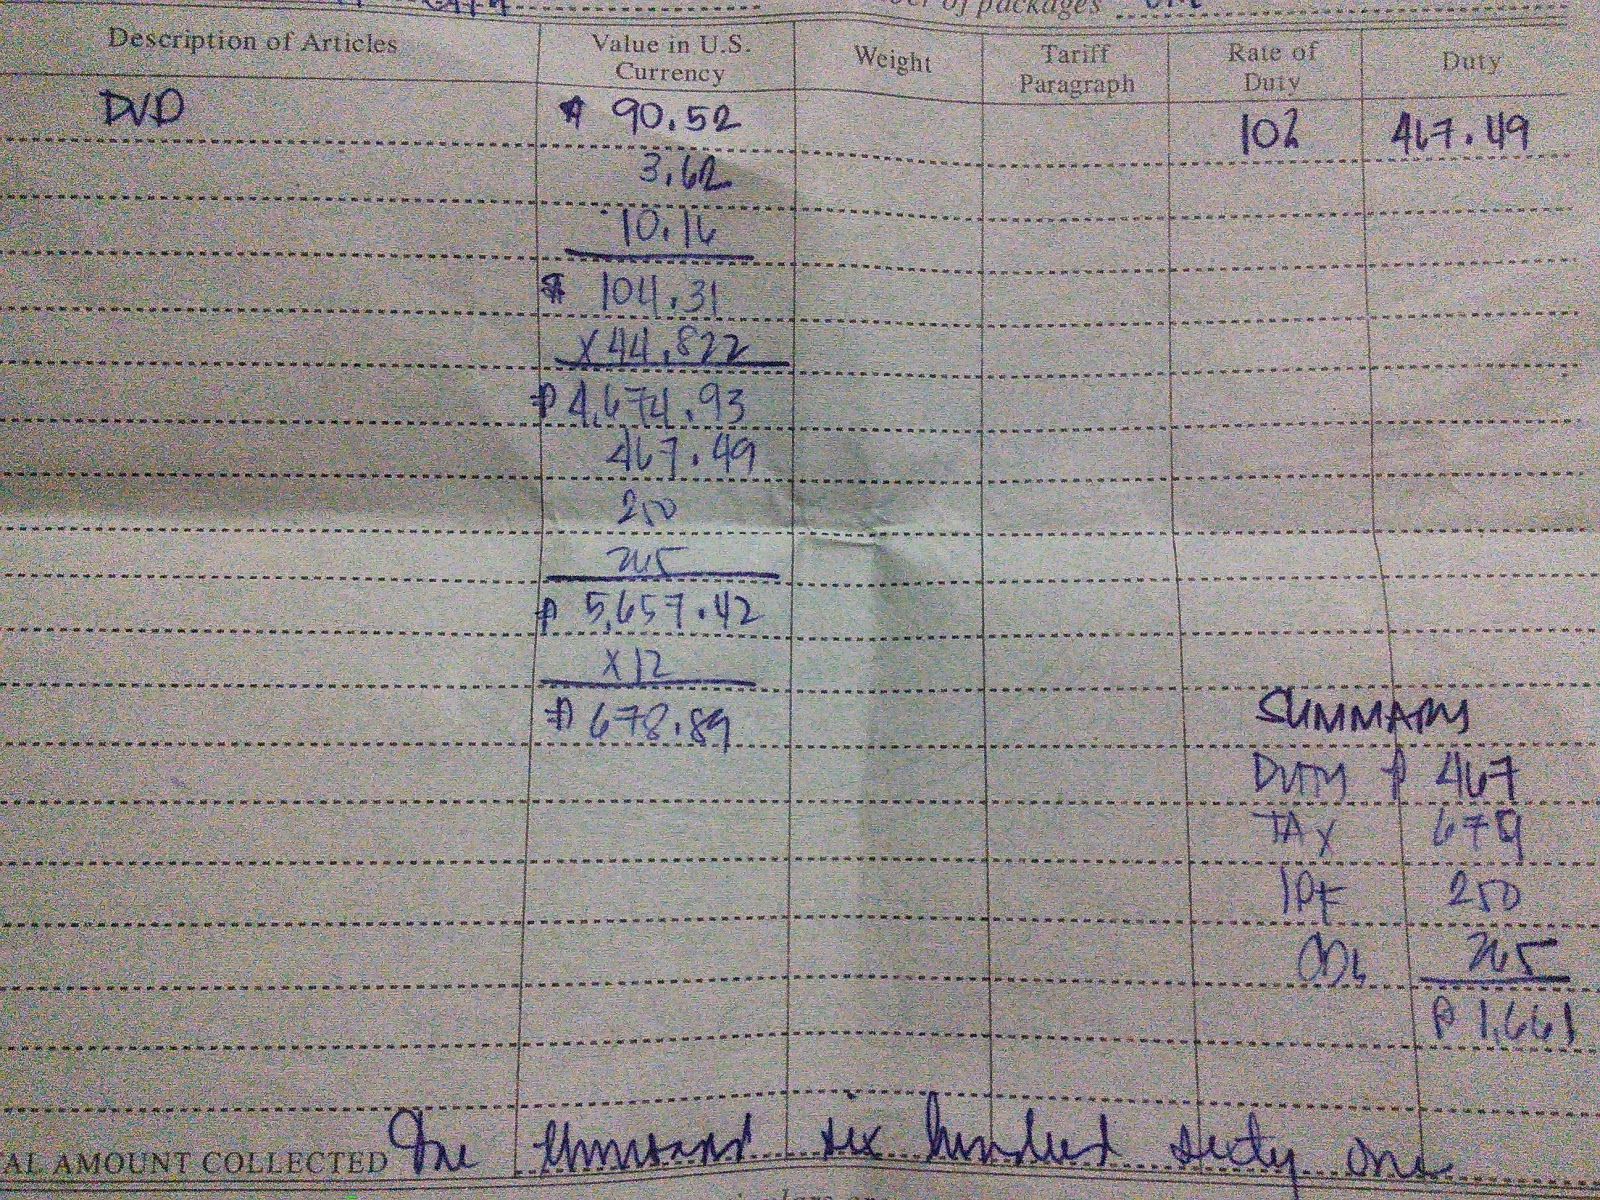 of packages
Description of Articles Value in U.S. Currency Weight Tariff Paragraph Rate of Duty Duty
DVD $ 90.52 10% 467.49
3.62
10.16
$ 104.31
X 44.822
₱ 4,674.93
467.49
250
265
₱ 5,657.42
X 12
₱ 678.89
SUMMARY
DUTY ₱ 467
TAX 679
IPF 250
265
₱ 1,661
AL AMOUNT COLLECTED One thousand six hundred sixty one